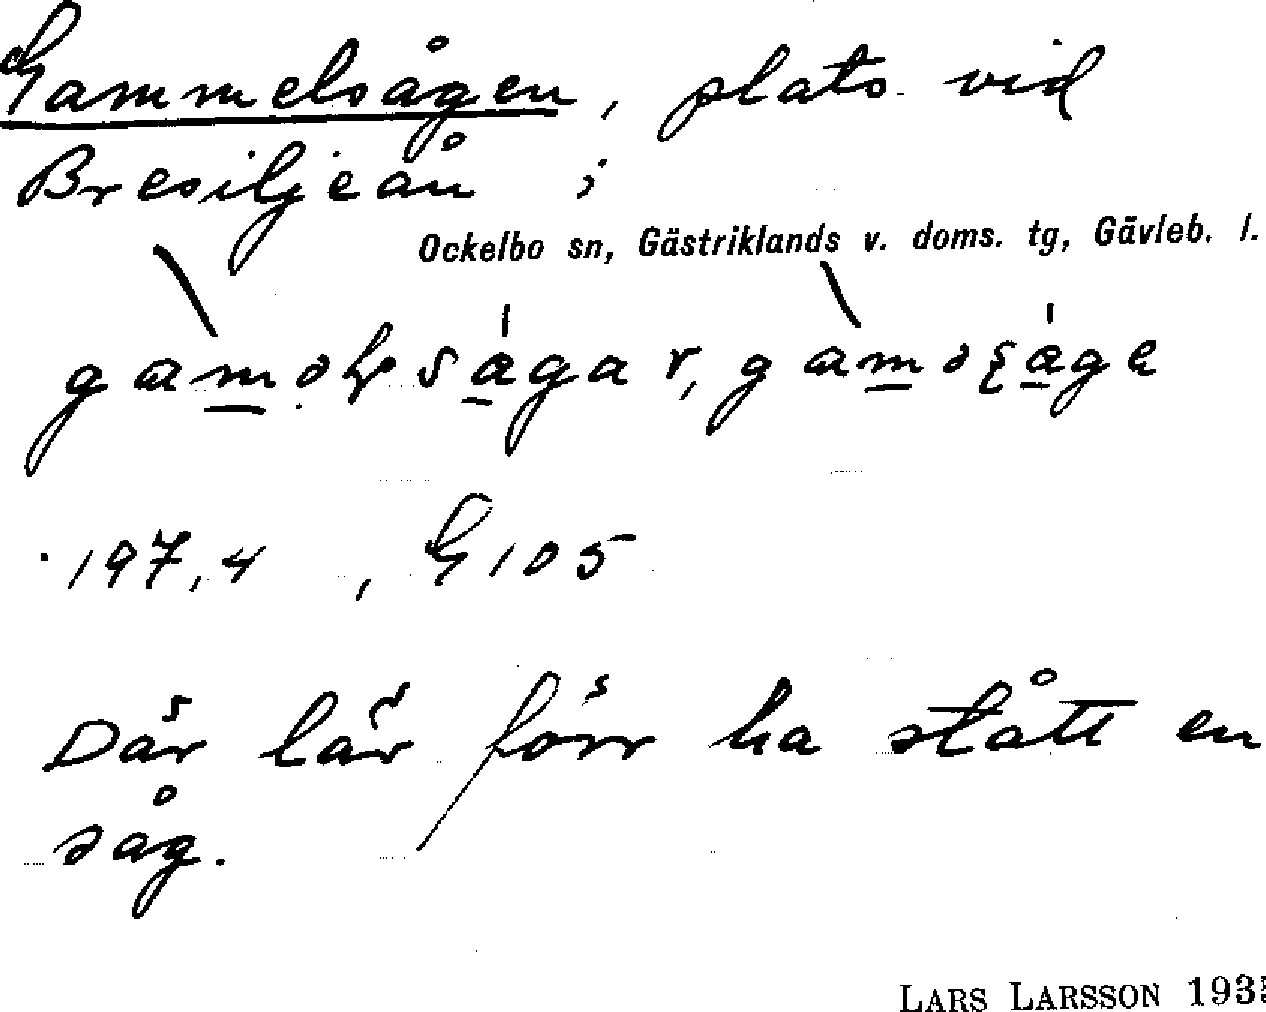 Gammelsågen, plats vid
Bresiljeån ;
Ockelbo sn, Gästriklands v. doms. tg, Gävleb. l.
197,4 , G 105
Där lär förr ha stått en
såg.
LARS LARSSON 193